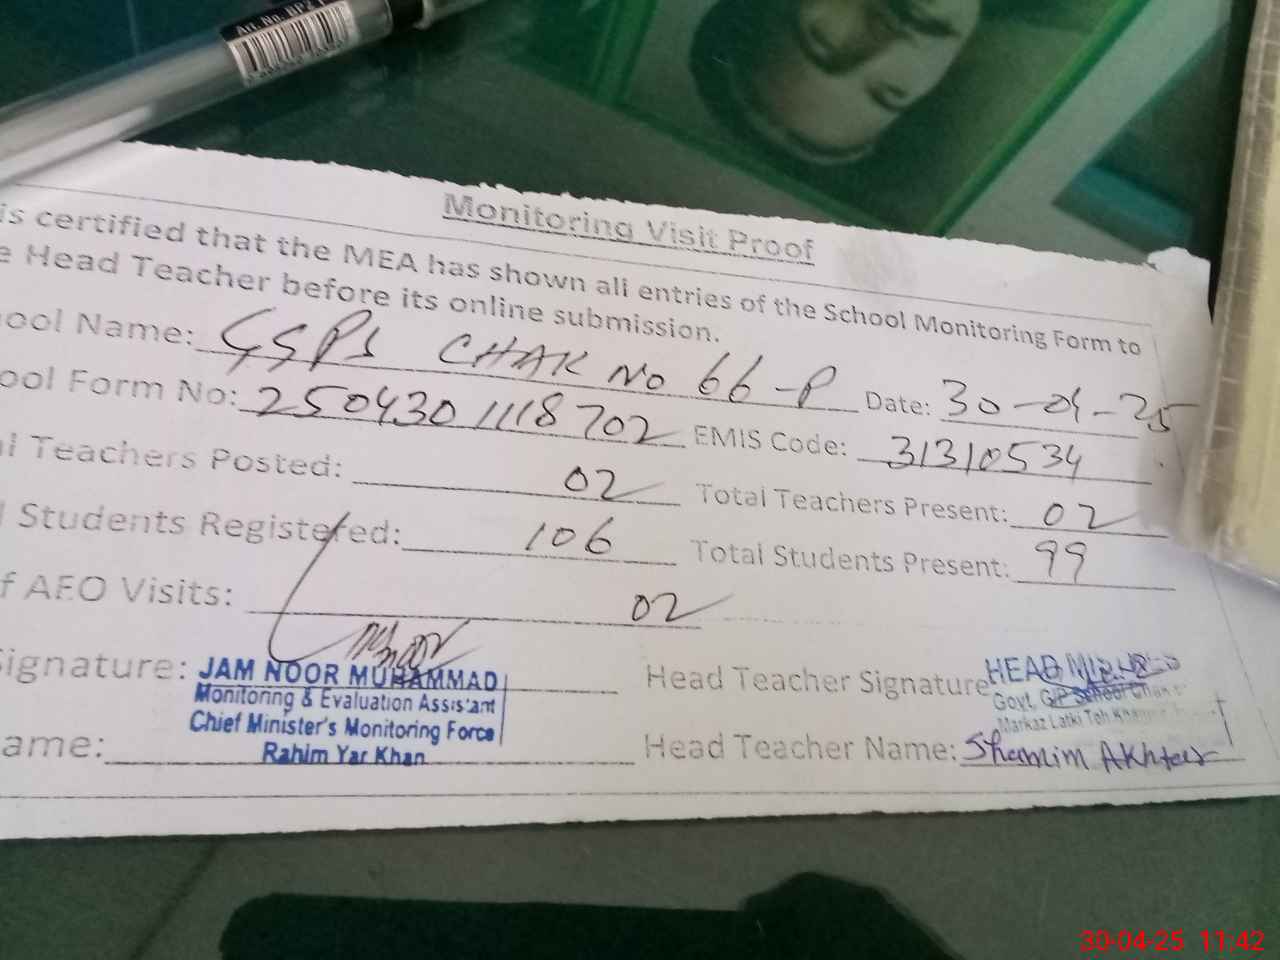 Art. No. BP2
Monitoring Visit Proof
is certified that the MEA has shown all entries of the School Monitoring Form to
e Head Teacher before its online submission.
ool Name: GGPS CHAK No 66-P Date: 30-04-25
ool Form No: 2504301118702 EMIS Code: 31310534
l Teachers Posted: 02 Total Teachers Present: 02
l Students Registered: 106 Total Students Present: 99
f AEO Visits: 02
Signature: JAM NOOR MUHAMMAD Head Teacher Signature HEAD
Monitoring & Evaluation Assistant Govt. G/P School Chak
Chief Minister's Monitoring Force Markaz Latki Teh Khanpur
Rahim Yar Khan
ame: Head Teacher Name: Shamim Akhtar
30-04-25 11:42